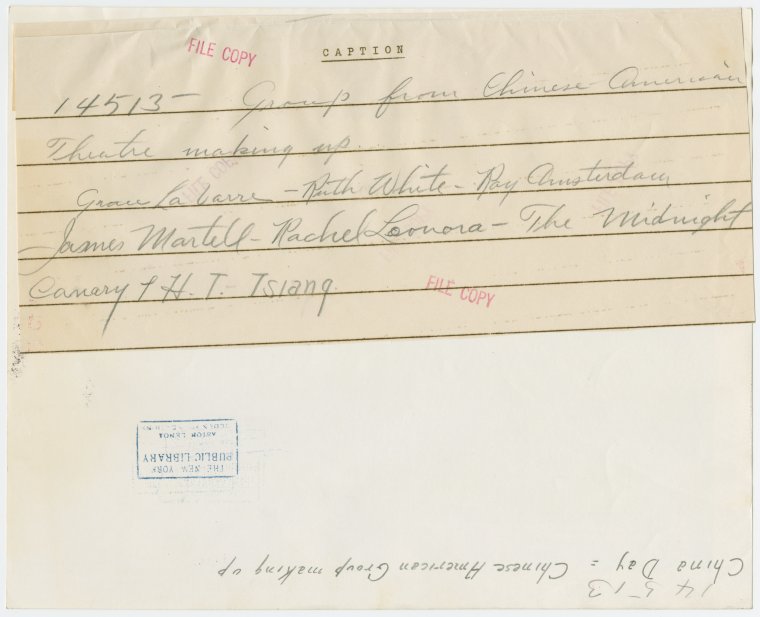 FILE COPY
CAPTION
14513 - Group from Chinese American
Theatre making up.
Grace La Varre - Ruth White - Ray Amsterdam
James Martell - Rachel Leonora - The Midnight
Canary & H. T. Tsiang.
FILE COPY
THE NEW YORK
PUBLIC LIBRARY
ASTOR LENOX
14513
China Day = Chinese American Group making up